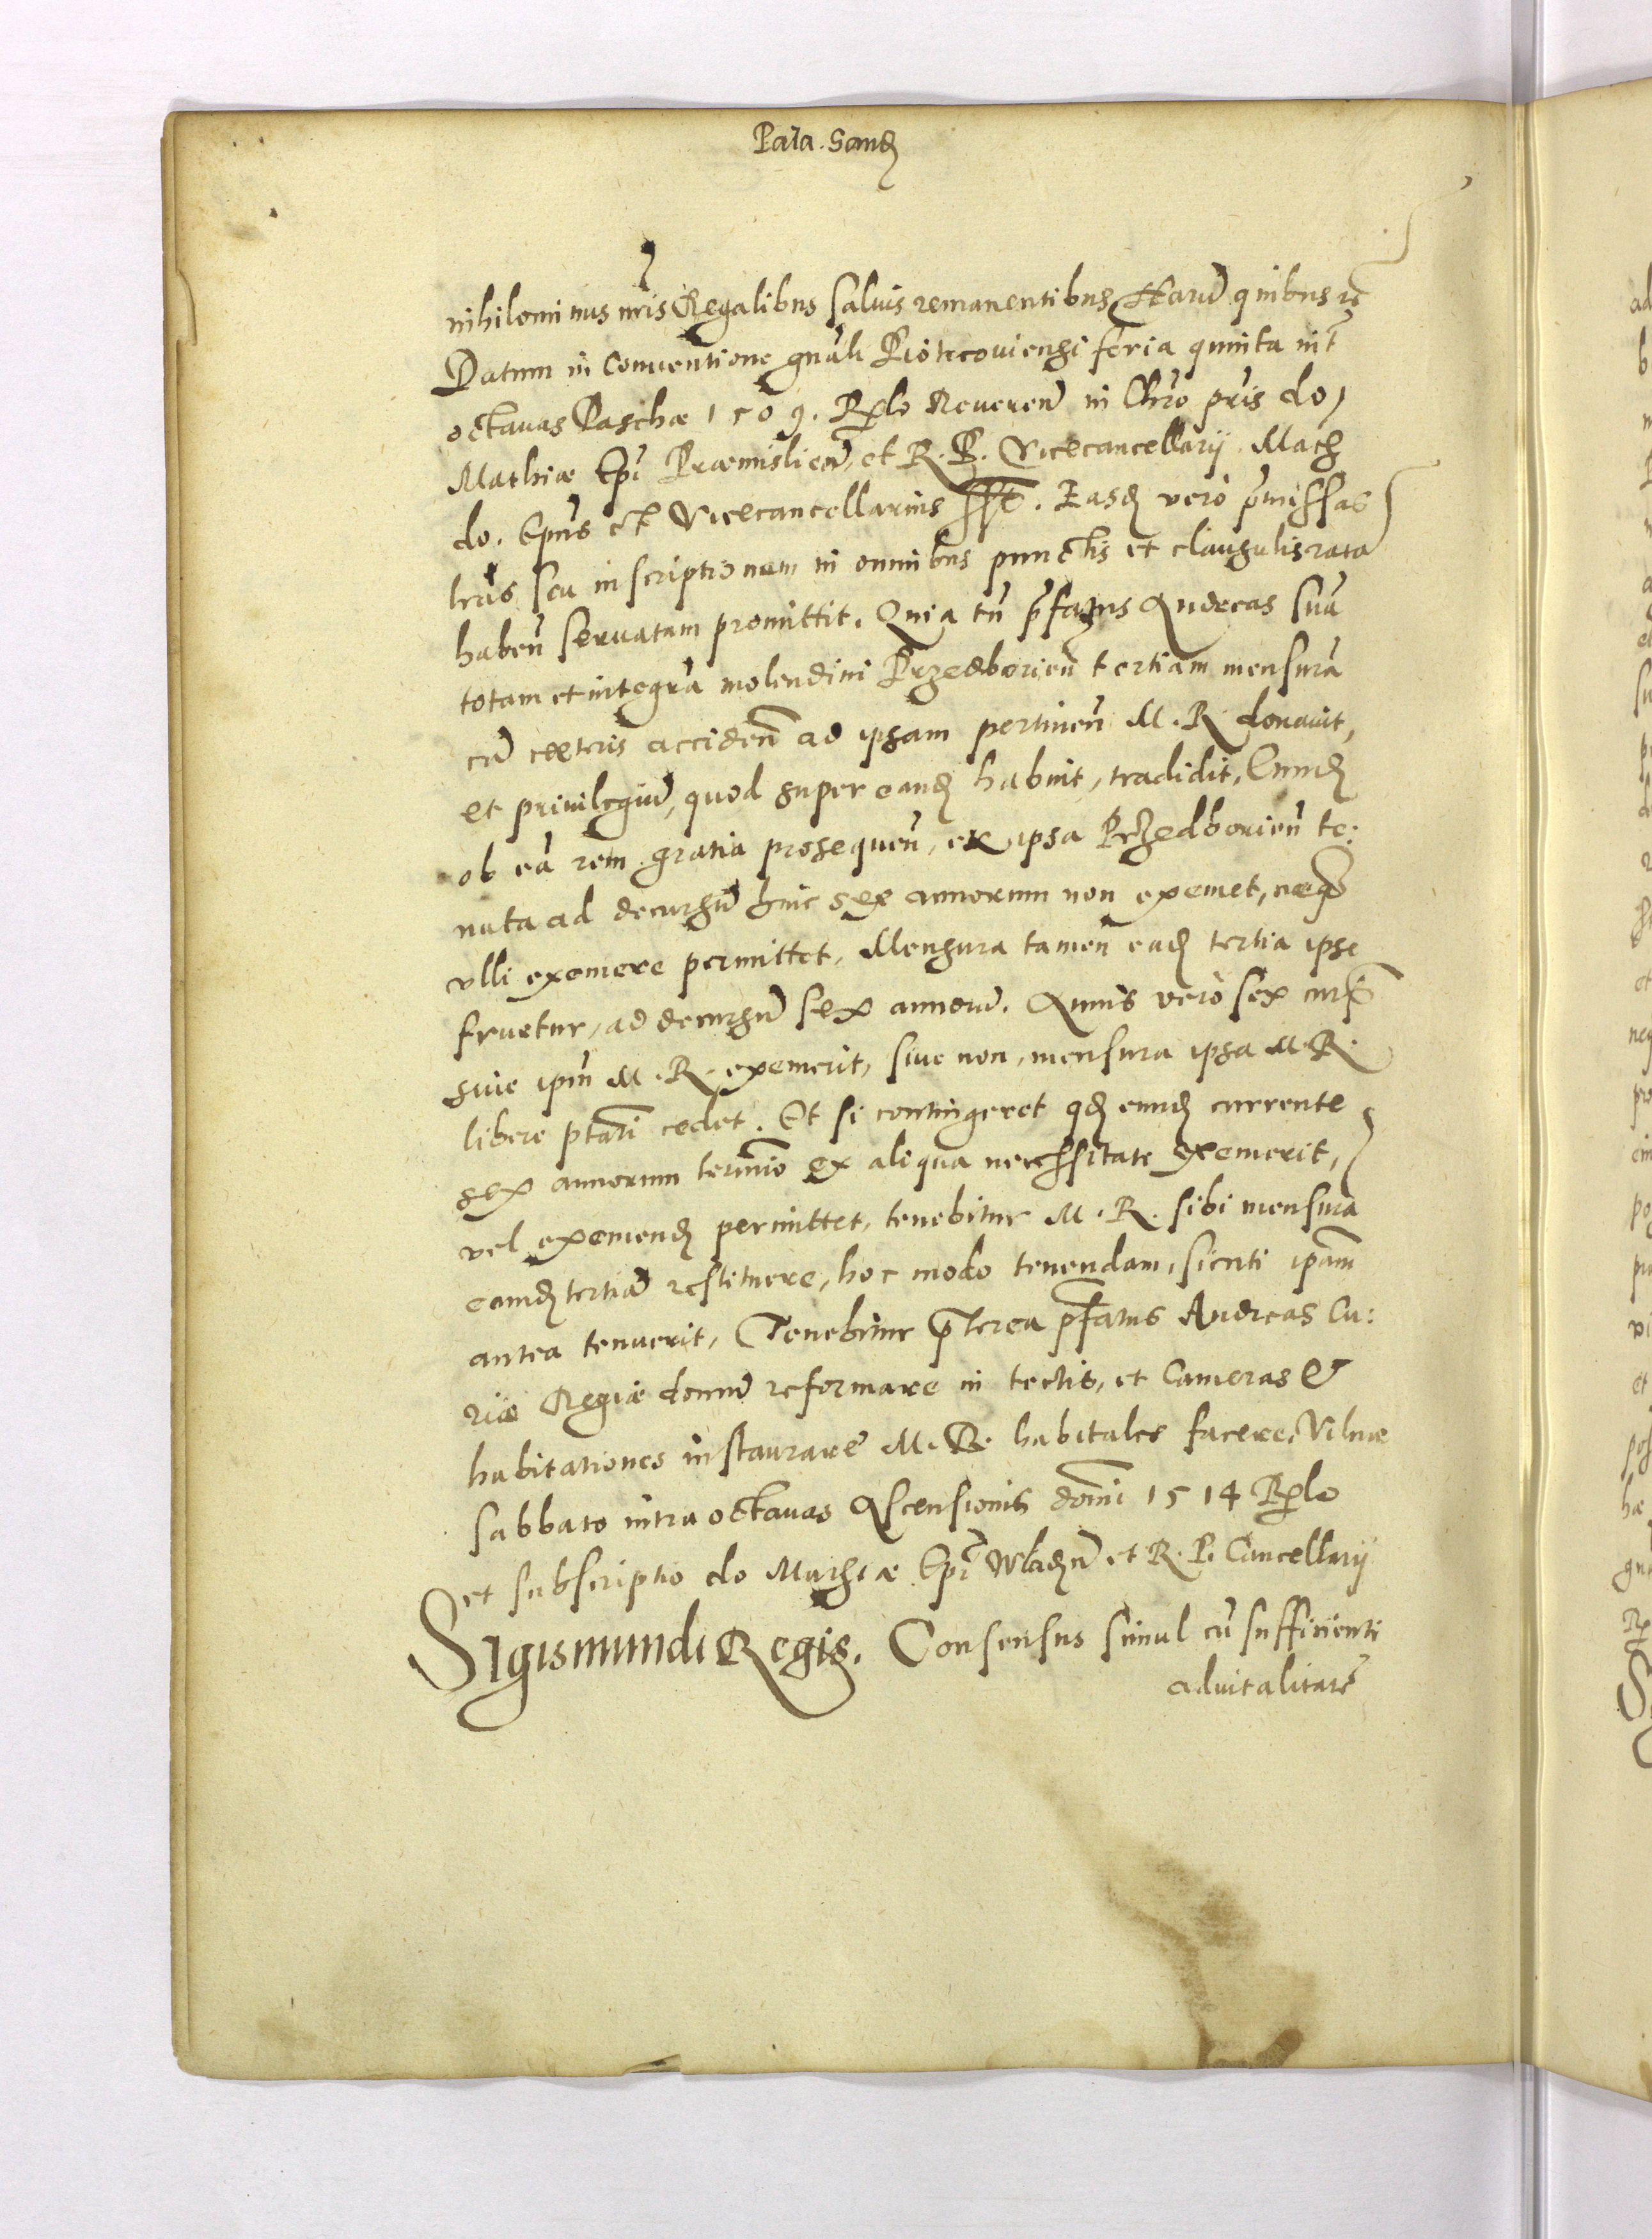 Pala. Sand
nihilominus nris Regalibus saluis remanentibus Harū quibus rc
Datum in Conuentione gnāli Piotrcouiensi feria quinta int
octauas Paschæ 1509. Rlo Reueren in Chro pris do
Mathiæ Epi Præmislien, et R. P. Vicecancellarij. Math
do. Epus et Vicecancellarius sst. Easd vero pmissas
lras seu inscriptionem in omnibus punctis et clausulis rata
haben seruatam promittit. Quia tn pfatus Andreas sua
totam et integrā molendini Przedborien tertiam mensurā
cū cæteris acciden ad ipsam pertinen M. R. donauit,
et priuilegiū, quod super eand habuit, tradidit, Eund
ob eā rem gratia prosequen, ex ipsa Przedborien te:
nuta ad decursū huic sex annorum non exemet, neq
vlli exemere permittet, Mensura tamen ead tertia ipse
fruetur, ad decursū sex annorū. Annis vero sex
siue ipm M. R. exemerit, siue non, mensura ipsa M. R.
libere ptati cedet. Et si contingeret qd eund currente
sex annorum termino ex aliqua necessitate exemerit,
vel exemend permittet, tenebitur M. R. sibi mensurā
eamd tertiā restituere, hoc modo tenendam, sicuti ipam
antea tenuerit, Tenebitur pterea pfatus Andreas Cu:
riæ Regiæ domū reformare in tectis, et Cameras &
habitationes instaurare M. R. habitales facere. Vilnæ
sabbato intra octauas Ascensionis domi 1514 Rlo
et subscriptio do Mathiæ Epi Wladn et R. P. Cancellarij
Sigismundi Regis. Consensus simul cū sufficienti
aduitalitate